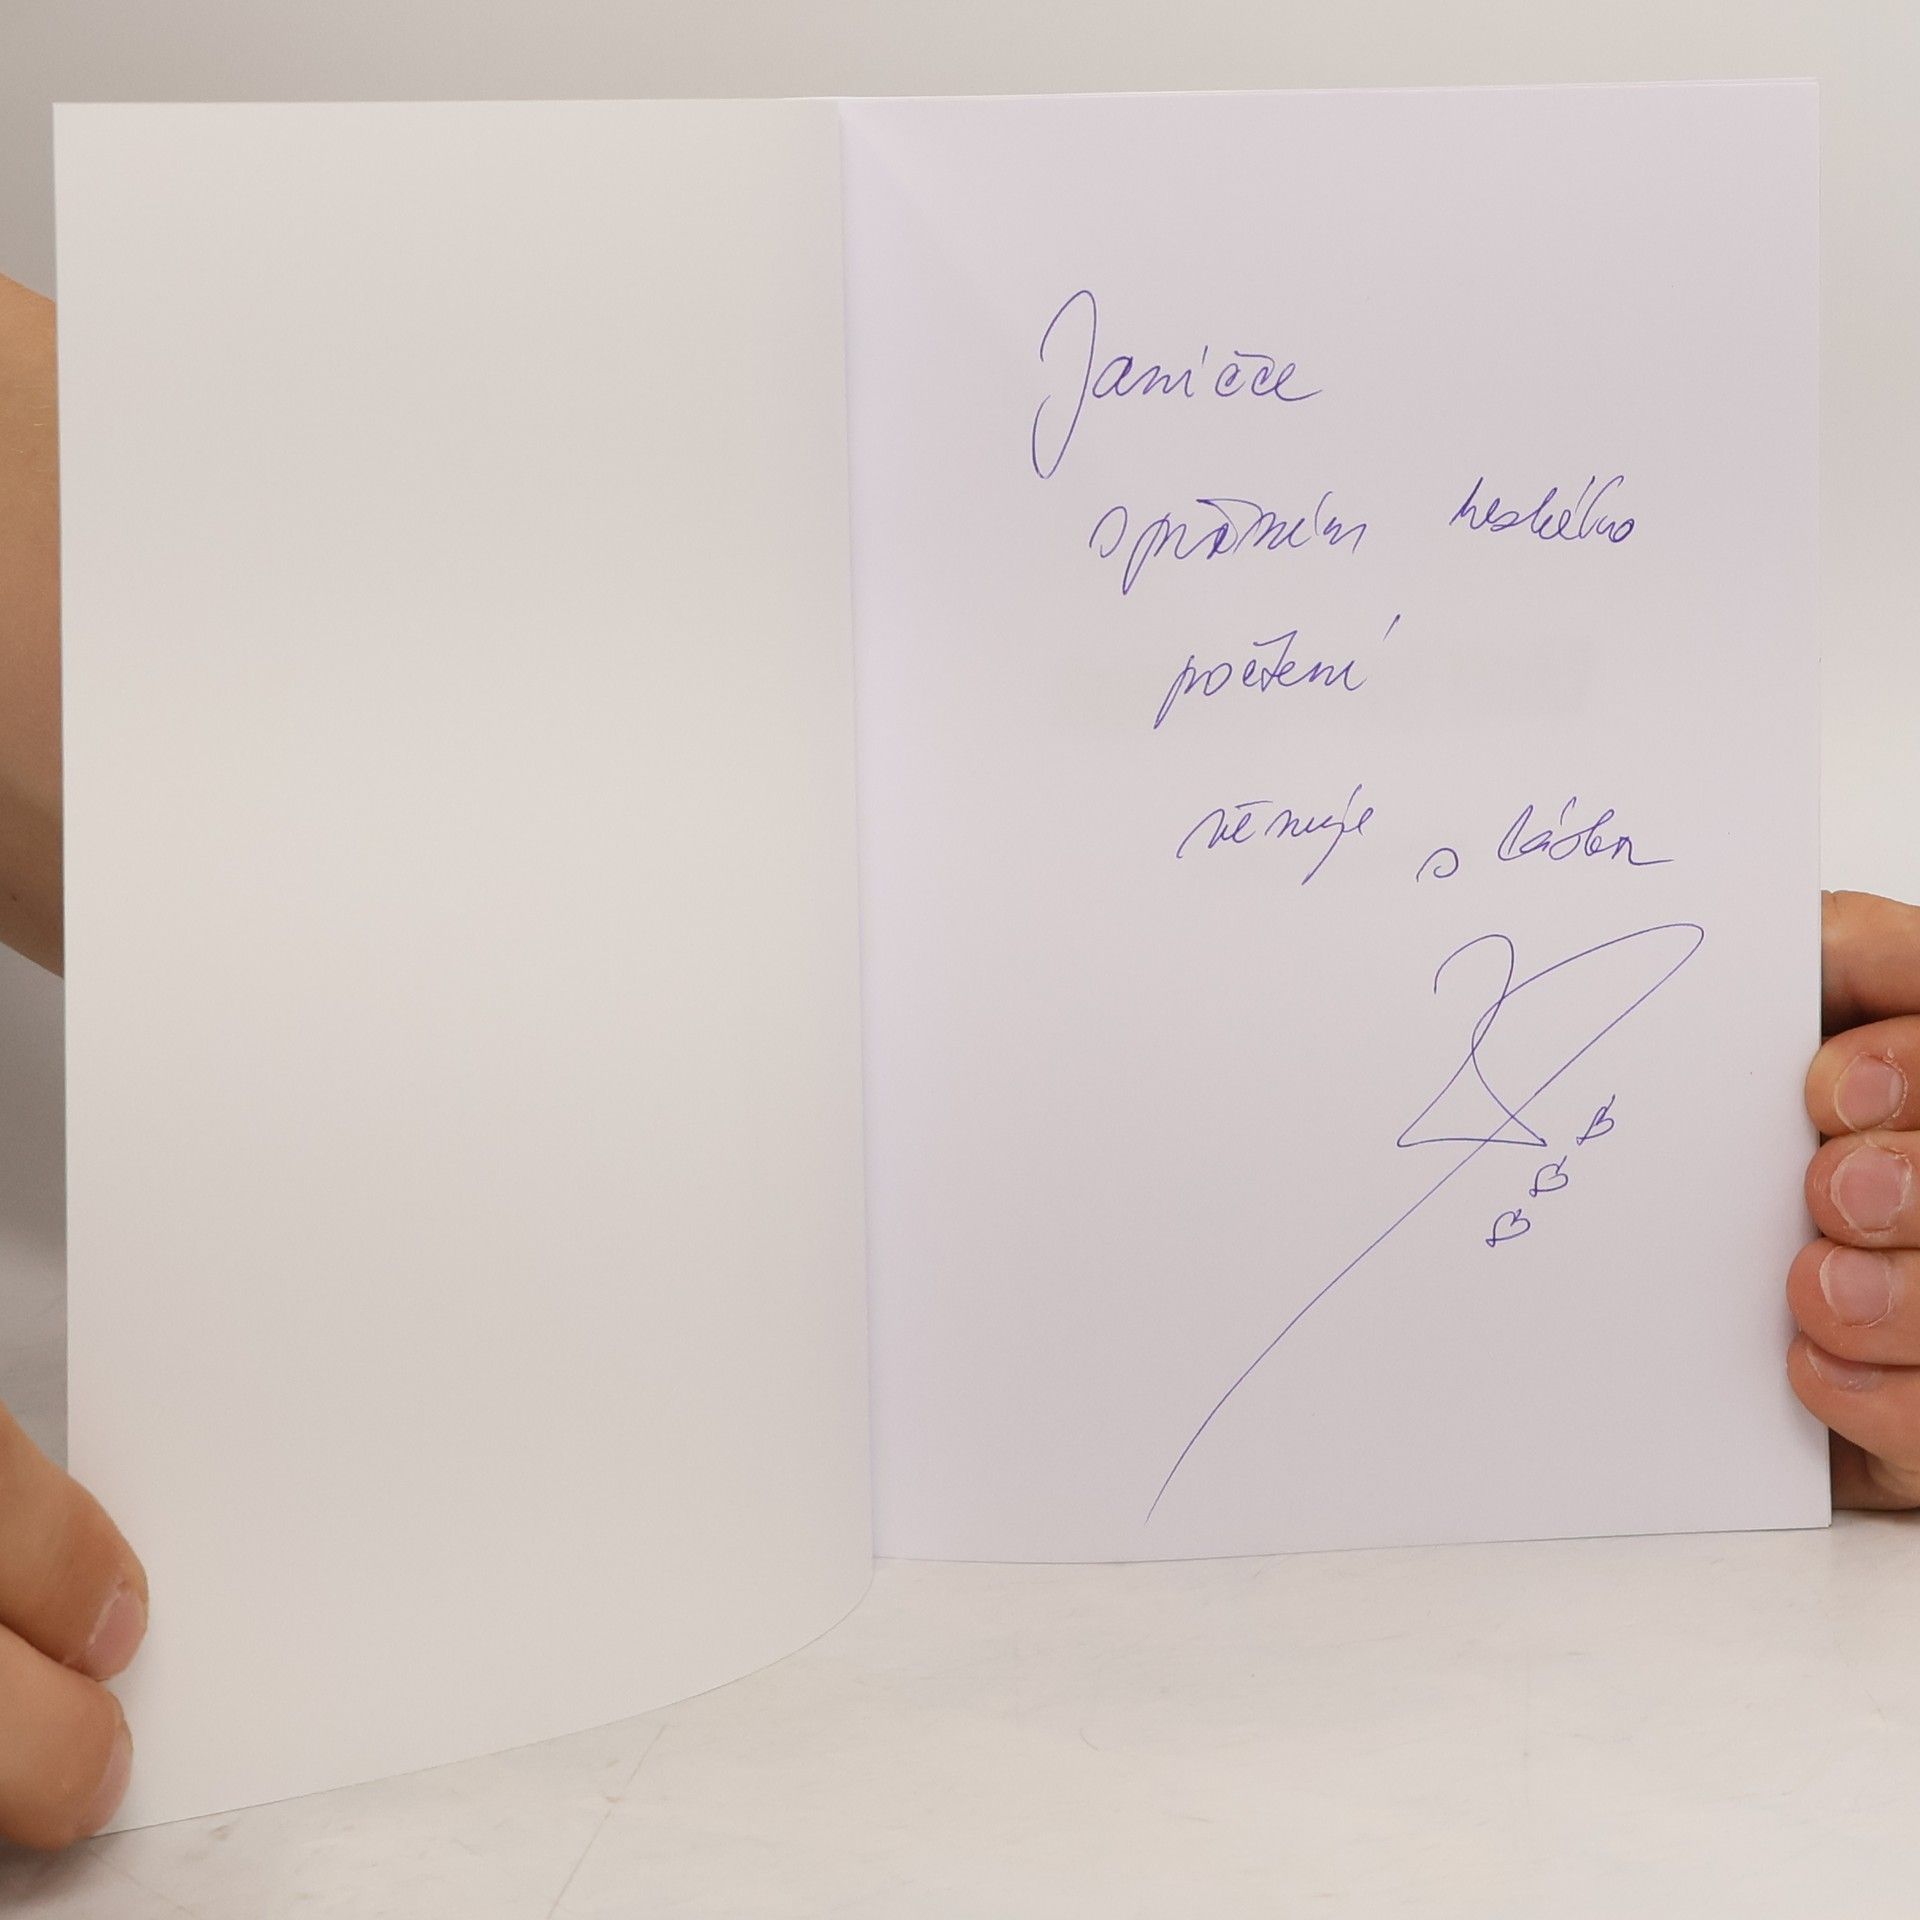 Janičče
s přáním hezkého
počtení
věnuje s láskou